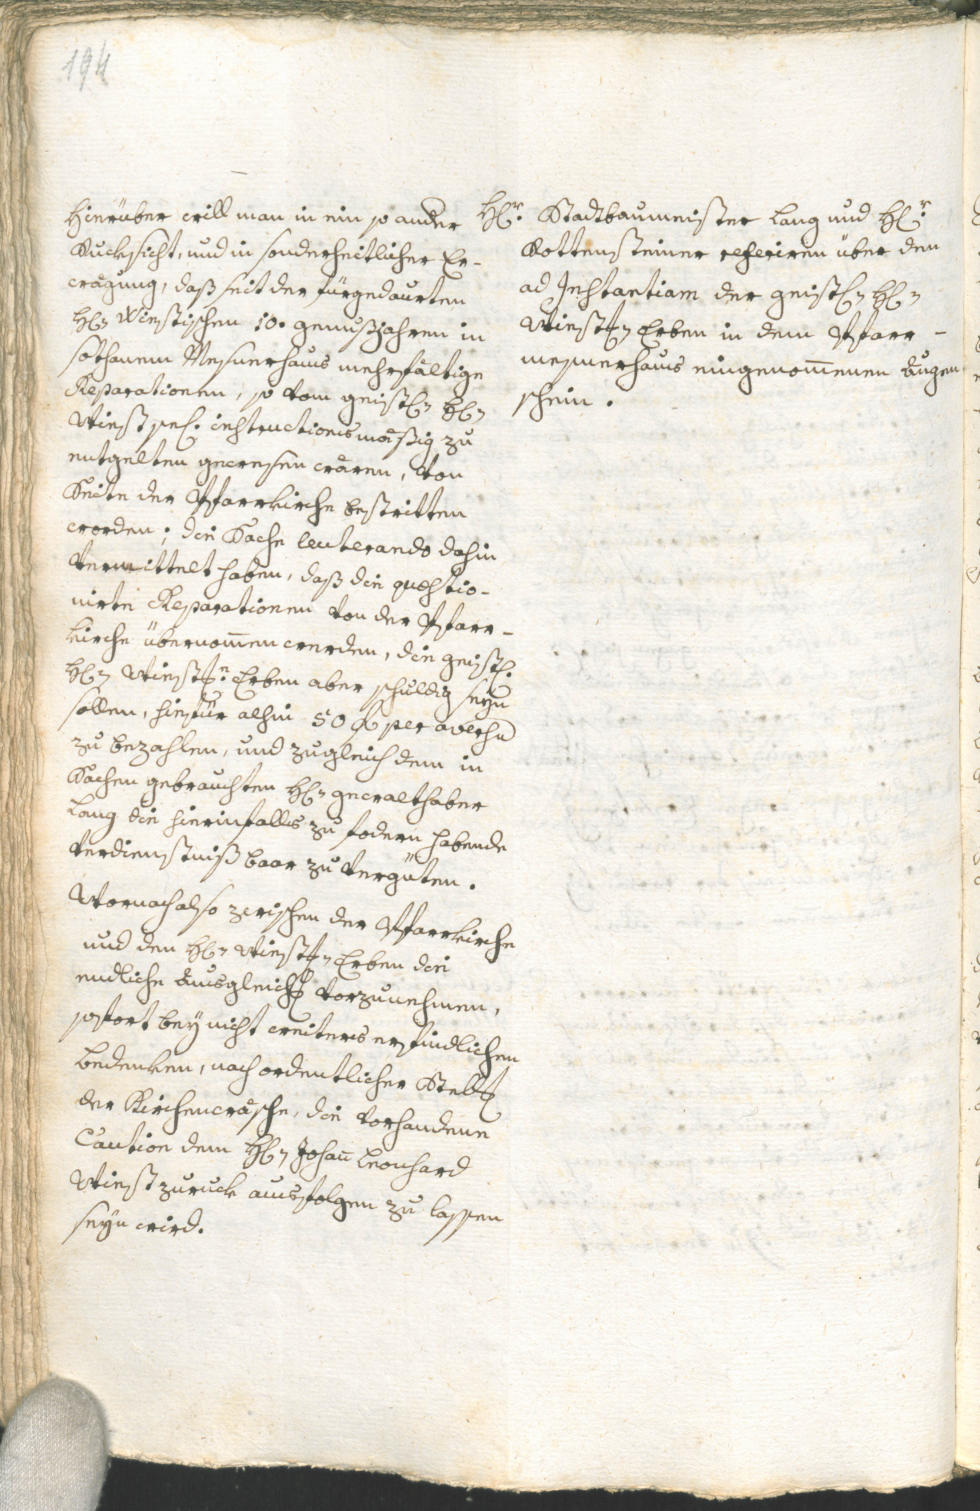 194
Hierüber will man in ein so ander
Rucksicht, und in sonderheitlicher Er-
wägung, daß seit der fürgedaurten
H(errn) Wiestischen 10. genußjahren in
sothanem Mesnerhaus mehrfältige
Reparationen, so vom geistl: H:
Wiest sel: instructionsmäßig zu
entgelten gewesen wären, von
Seite der Pfarrkirche bestritten
worden; die Sache leuterando dahin
vermittelt haben, daß die questio-
nirte Reparationen von der Pfarr-
kirche übernommen werden, die geistl:
H: Wiestn: Erben aber schuldig seyn
sollen, hiefür alhin 50 f per aversu
zu bezahlen, und zugleich dem in
Sachen gebrauchten H: gewalthaber
Lang die hierinfalls zu fodern habende
Verdienstniß baar zu vergüten.
Wornach also zwischen der Pfarrkirche
und den H: Wiestn: Erben die
endliche Ausgleich vorzunehmen,
sofort bey nicht weiters erfindlichen
bedenken, nach ordentlicher Stell
der Kirchenwäsche, die vorhandene
Caution dem H: Johan Leonhard
Wiest zuruck ausfolgen zu lassen
seyn wird.
H:r Stadtbaumeister Lang und H:r
Rottensteiner referiren über den
ad Instantiam der geistl: H:
Wiestn: Erben in dem Pfarr-
mesnerhaus eingenommenen Augen
schein.